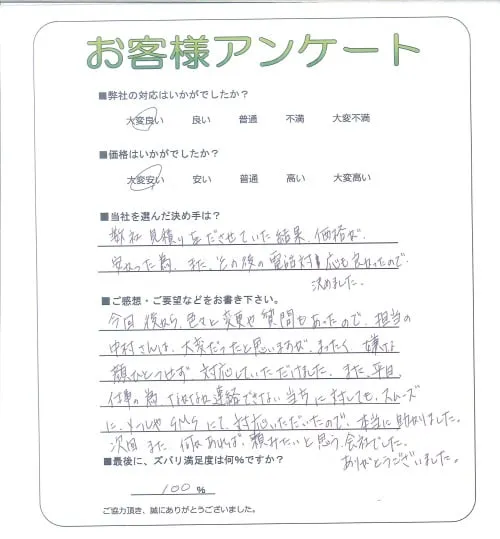 お客様アンケート
■弊社の対応はいかがでしたか？
大変良い 良い 普通 不満 大変不満
■価格はいかがでしたか？
大変安い 安い 普通 高い 大変高い
■当社を選んだ決め手は？
数社見積り出させていた結果、価格が、
安かった為、また、その後の電話対応も良かったので、
決めました。
■ご感想・ご要望などをお書き下さい。
今回後から、色々と変更や質問もあったので、担当の
中村さんは、大変だったと思いますが、まったく嫌な
顔ひとつせず、対応していただけました。また、平日、
仕事の為なかなか連絡できない当方に対しても、スムーズ
に、メッセやSMSにて、対応いただいたので、本当に助かりました。
次回また何かあれば、頼みたいと思う会社でした。
ありがとうございました。
■最後に、ズバリ満足度は何％ですか？
100 %
ご協力頂き、誠にありがとうございました。